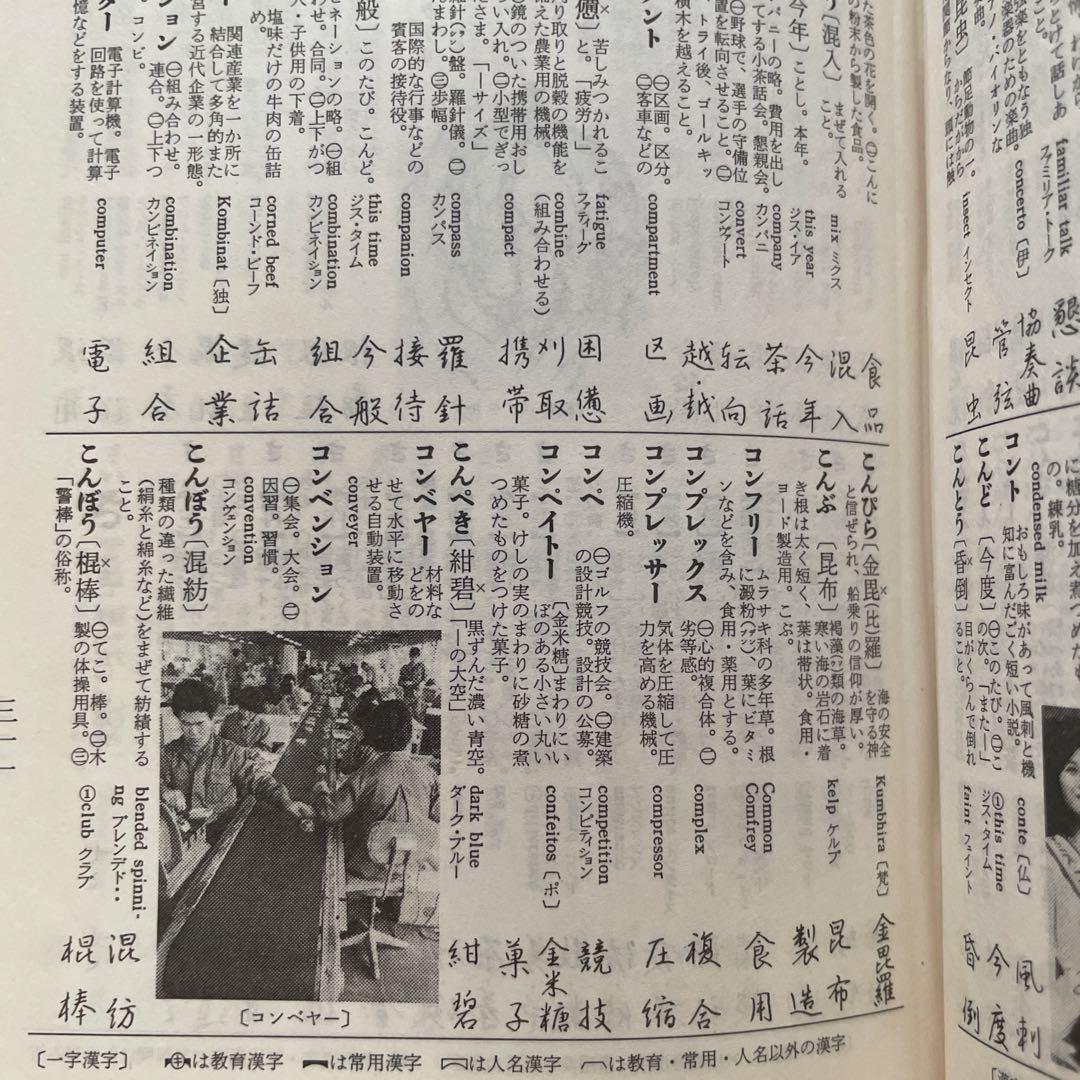 familiar talk
ファミリア・トーク
concerto〔伊〕
insect インセクト
懇談
協奏曲
管弦
昆虫
コント
おもしろ味があって風刺と機
知に富んだごく短い小説。
conte〔仏〕
風刺
こんど〔今度〕
㊀このたび。㊁こ
の次。「また―」
①this time
ジス・タイム
今度
こんとう〔昏倒〕
目がくらんで倒れ
ること。
faint フェイント
昏倒
に糖分を加え煮つめたも
の。練乳。
condensed milk
た茶色の花を開く。㊁こんに
の粉末から製した食品。
食品
〔混入〕
まぜて入れる
こと。
mix ミクス
混入
今年〕ことし。本年。
this year
ジス・イア
今年
パニーの略。費用を出し
てする小茶話会。懇親会。
company
カンパニ
茶話
㊀野球で、選手の守備位
置を転向させること。㊁
トライ後、ゴールキッ
横木を越えること。
convert
コンヴァート
転向
越・越
ント
㊀区画。区分。
㊁客車などの
compartment
区画
憊〕
苦しみつかれるこ
と。「疲労―」
fatigue
ファティーグ
困憊
刈り取りと脱穀の機能を
備えた農業用の機械。
combine
(組み合わせる)
刈取
㊀鏡のついた携帯用おし
ろい入れ。㊁小型でぎっ
「―サイズ」
compact
携帯
羅針(らしん)盤。羅針儀。㊁
まわし。㊂歩幅。
compass
カンパス
羅針
国際的な行事などの
賓客の接待役。
companion
接待
般〕このたび。こんど。
this time
ジス・タイム
今般
ネーションの略。㊀組
わせ。合同。㊁上下がつ
人・子供用の下着。
combination
カンビネイション
組合
塩味だけの牛肉の缶詰
め。
corned beef
コーンド・ビーフ
缶詰
関連産業を一か所に
結合して多角的また
営する近代企業の一形態。
Kombinat〔独〕
企業
ション
㊀組み合わせ。
連合。㊁上下つ
コンビ。
combination
カンビネイション
組合
ター
電子計算機。電子
回路を使って計算
憶などをする装置。
computer
電子
こんぴら〔金毘(比)羅〕
海の安全
を守る神
と信ぜられ、船乗りの信仰が厚い。
Kumbhira〔梵〕
金毘羅
こんぶ〔昆布〕
褐藻(そう)類の海草。
寒い海の岩石に着
き根は太く短く、葉は帯状。食用・
ヨード製造用。こぶ。
kelp ケルプ
昆布
製造
コンフリー
ムラサキ科の多年草。根
に澱粉(でんぷん)、葉にビタミ
ンなどを含み、食用・薬用とする。
Common
Comfrey
食用
コンプレックス
㊀心的複合体。㊁
劣等感。
complex
複合
コンプレッサー
気体を圧縮して圧
力を高める機械。
圧縮機。
compressor
圧縮
コンペ
㊀ゴルフの競技会。㊁建築
の設計競技。設計の公募。
competition
コンピティション
競技
コンペイトー
〔金米糖〕まわりにい
ぼのある小さい丸い
菓子。けしの実のまわりに砂糖の煮
つめたものをつけた菓子。
confeitos〔ポ〕
金米糖
菓子
こんぺき〔紺碧〕
黒ずんだ濃い青空。
「―の大空」
dark blue
ダーク・ブルー
紺碧
コンベヤー
材料な
どをの
せて水平に移動さ
せる自動装置。
conveyer
コンベンション
㊀集会。大会。㊁
因習。習慣。
convention
コンヴェンション
〔コンベヤー〕
こんぼう〔混紡〕
種類の違った繊維
(絹糸と綿糸など)をまぜて紡績する
こと。
blended spinni-
ng ブレンデド・
混紡
こんぼう〔棍棒〕
㊀てこ。棒。㊁木
製の体操用具。㊂
「警棒」の俗称。
①club クラブ
棍棒
三一一
〔一字漢字〕 は教育漢字 は常用漢字 は人名漢字 は教育・常用・人名以外の漢字